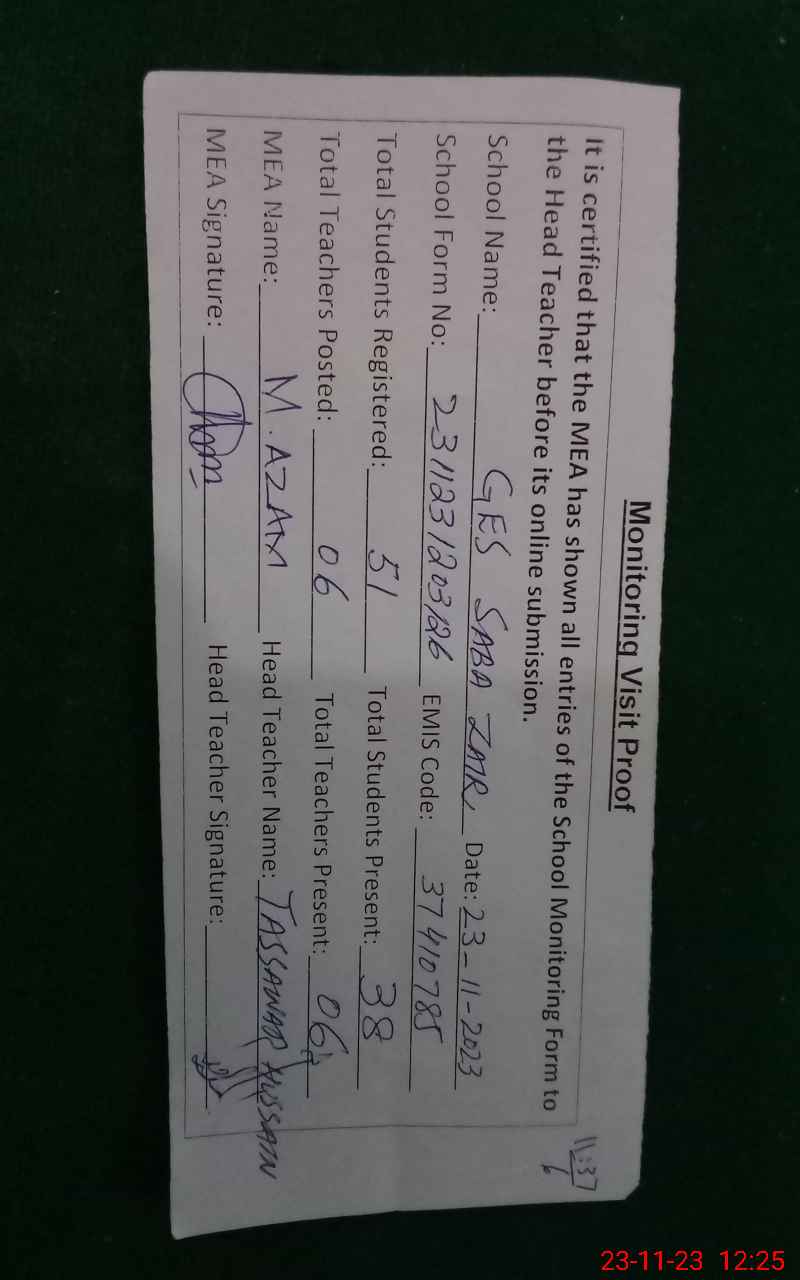 Monitoring Visit Proof
It is certified that the MEA has shown all entries of the School Monitoring Form to
the Head Teacher before its online submission.
School Name: GES SABA ZAIR Date: 23-11-2023
School Form No: 2311231203126 EMIS Code: 37410785
Total Students Registered: 51 Total Students Present: 38
Total Teachers Posted: 06 Total Teachers Present: 06
MEA Name: M. AZAM Head Teacher Name: TASSAWAR HUSSAIN
MEA Signature: Head Teacher Signature:
11:37
6
23-11-23 12:25